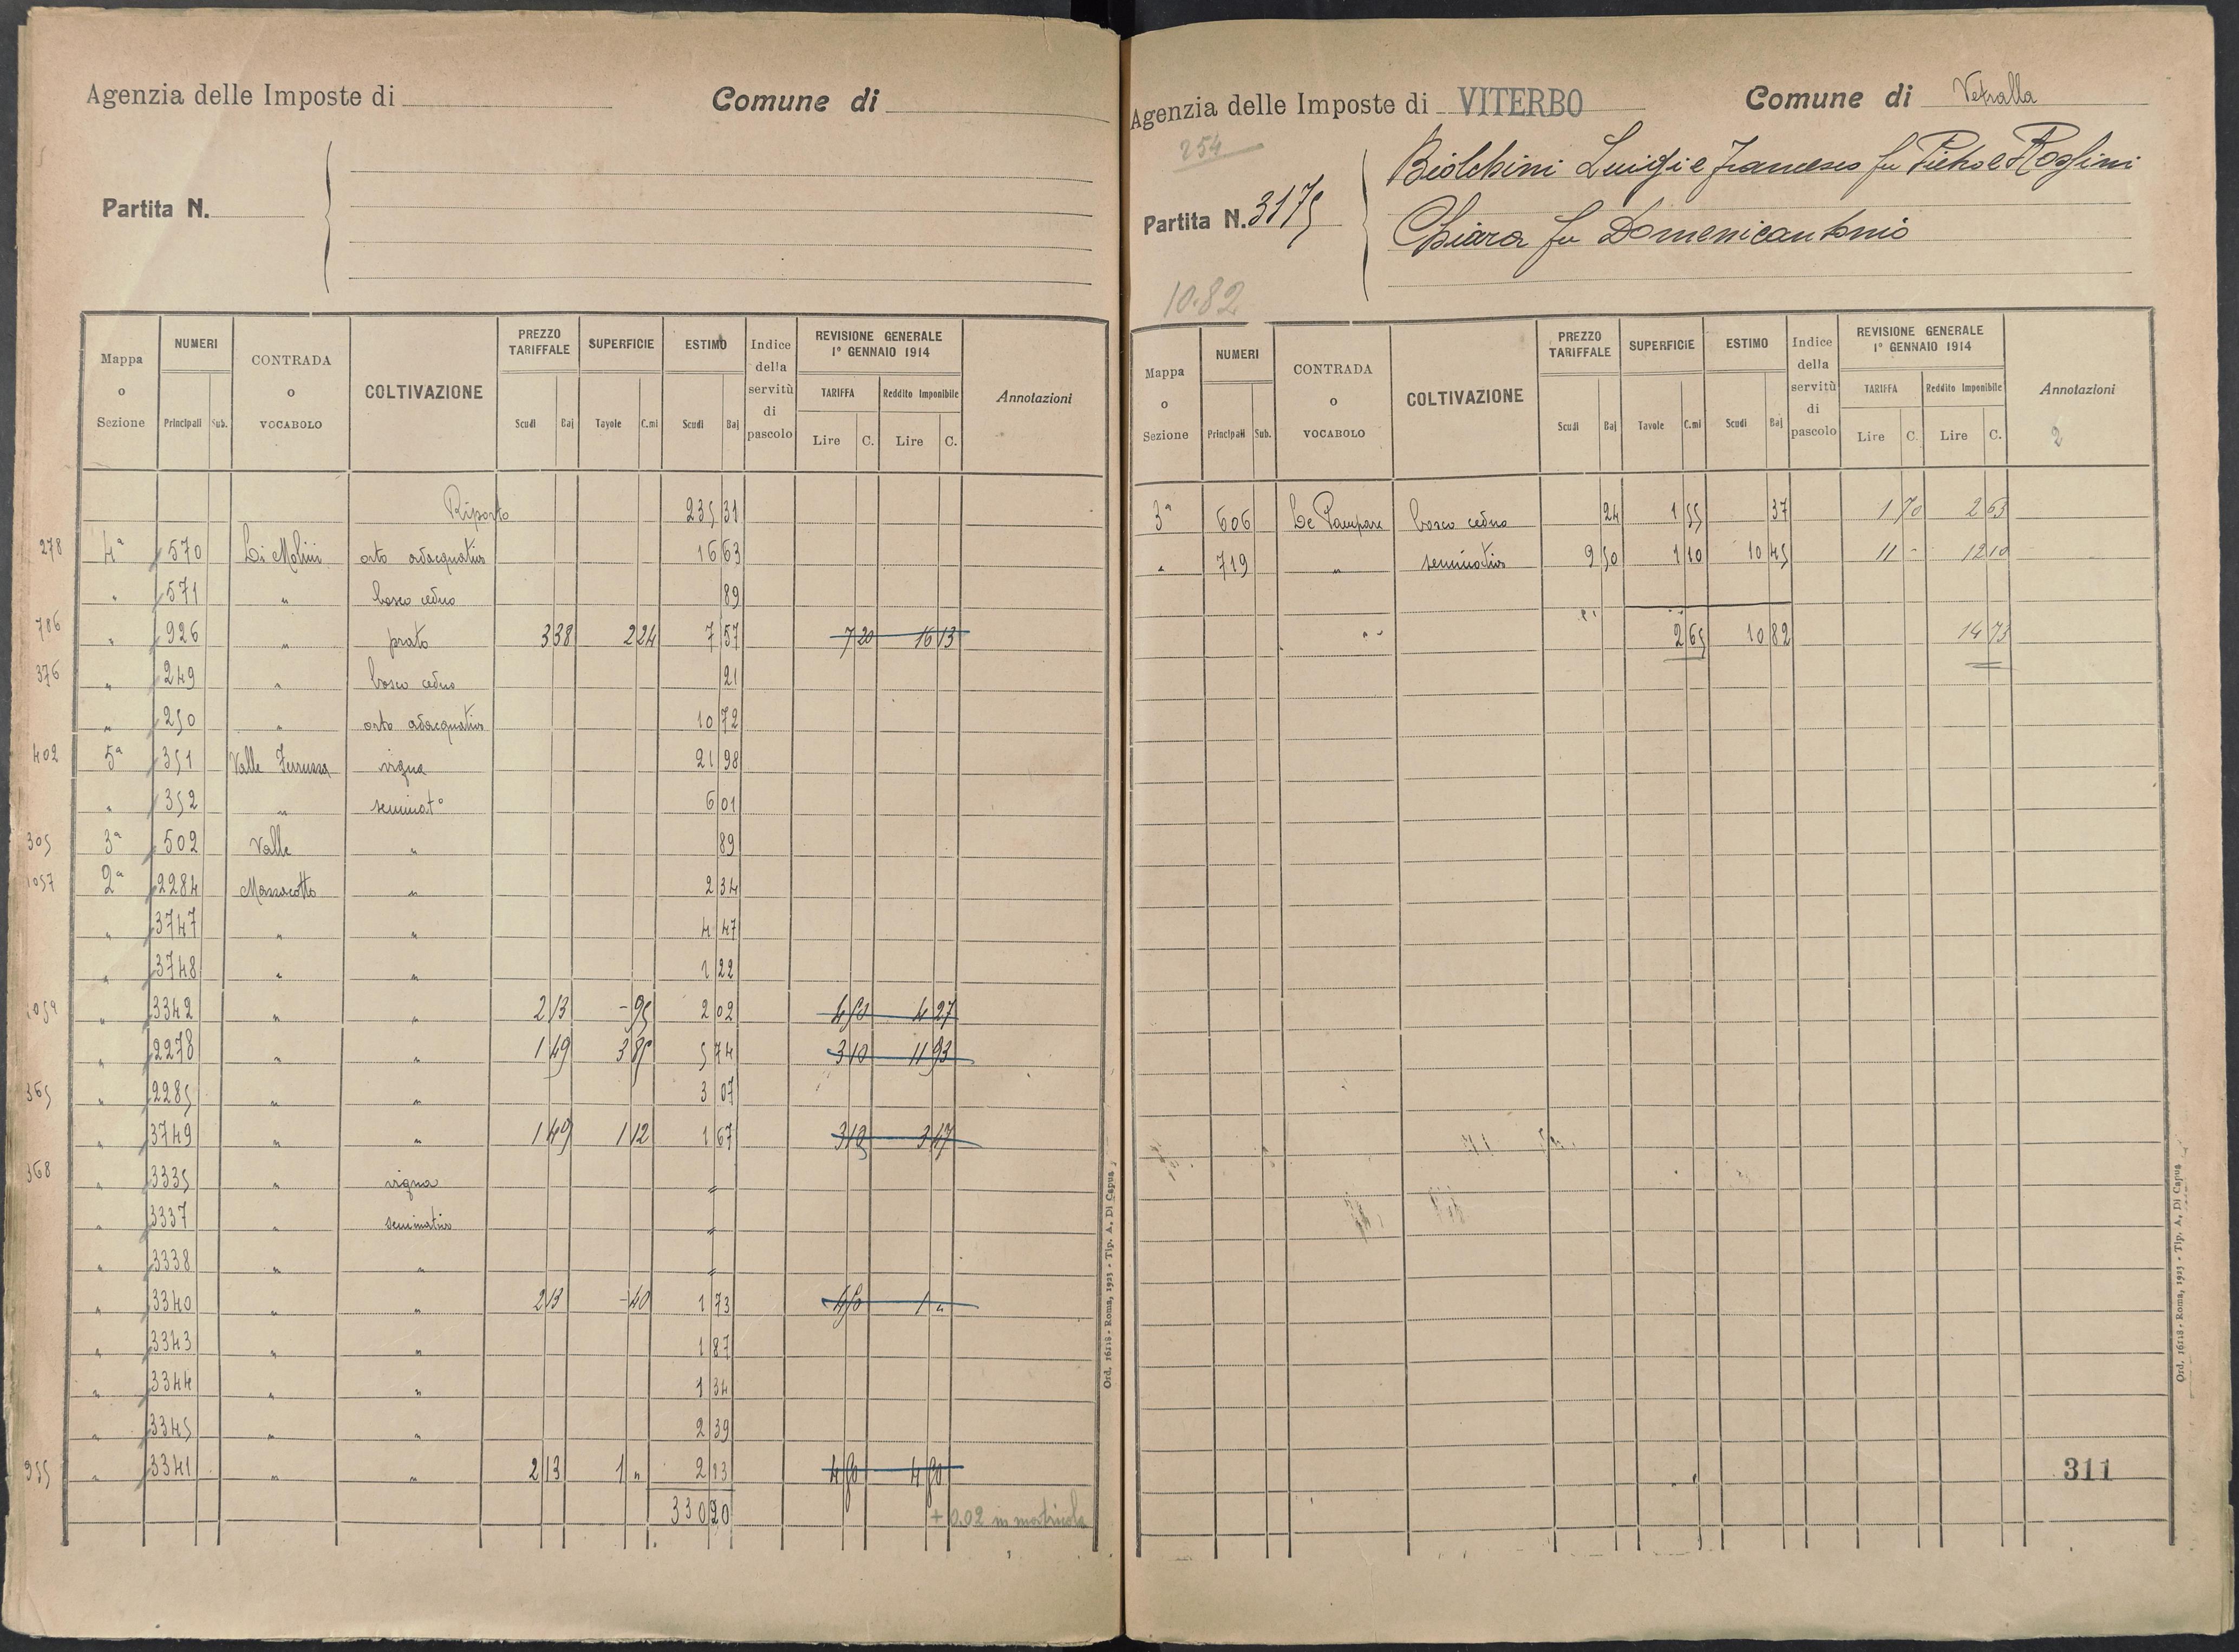 Agenzia delle Imposte di
Comune di
Partita N.
Mappa o Sezione NUMERI Principali Sub. CONTRADA o VOCABOLO COLTIVAZIONE PREZZO TARIFFALE Scudi Baj SUPERFICIE Tavole C.mi ESTIMO Scudi Baj Indice della servitù di pascolo REVISIONE GENERALE 1° GENNAIO 1914 TARIFFA Lire C. Reddito Imponibile Lire C. Annotazioni
Riporto 235 31
278 4ª 570 Li Molini orto adacquativo 16 63
" 571 " bosco ceduo 89
786 " 926 " prato 3 38 2 24 7 57 7 20 16 13
376 " 249 " bosco ceduo 21
" 250 " orto adacquativo 10 72
402 5ª 351 Valle vigna 21 98
" 352 " seminat° 6 01
305 3ª 502 Valle " 89
1057 2ª 2284 Mazzacotto " 2 34
" 3747 " " 4 47
" 3748 " " 1 22
1059 " 3342 " " 2 13 - 95 2 02 4 50 4 27
" 2278 " " 1 49 3 85 5 74 3 10 11 93
365 " 2285 " " 3 07
" 3749 " " 1 49 1 12 1 67 3 10 3 47
368 " 3335 " vigna "
" 3337 " seminativo "
" 3338 " " "
" 3340 " " 2 13 - 40 1 73 1 "
" 3343 " " 1 87
" 3344 " " 1 34
" 3345 " " 2 39
955 " 3341 " " 2 13 1 " 2 13 4 50 4 50
330 20 + 0.02 in matricola
Ord. 16118 - Roma, 1923 - Tip. A. Di Capua
Agenzia delle Imposte di VITERBO
Comune di Vetralla
254
Partita N. 3175
Biolchini Luigi e Francesco fu Pietro e Roglini
Chiara fu Domenicantonio
10.82
Mappa o Sezione NUMERI Principali Sub. CONTRADA o VOCABOLO COLTIVAZIONE PREZZO TARIFFALE Scudi Baj SUPERFICIE Tavole C.mi ESTIMO Scudi Baj Indice della servitù di pascolo REVISIONE GENERALE 1° GENNAIO 1914 TARIFFA Lire C. Reddito Imponibile Lire C. Annotazioni
2
3ª 606 Le Pampare bosco ceduo 24 1 55 37 1 70 2 63
" 719 " seminativo 9 50 1 10 10 45 11 - 12 10
2 65 10 82 14 73
311
Ord. 16118 - Roma, 1923 - Tip. A. Di Capua